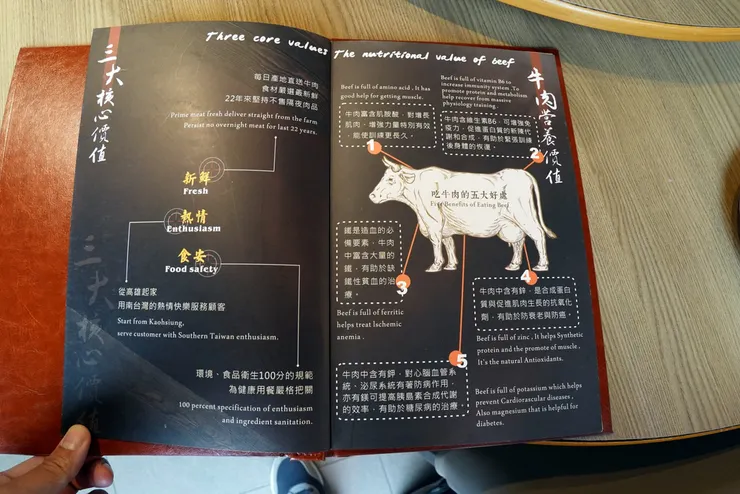 三大核心價值
Three core values
每日產地直送牛肉
食材嚴選最新鮮
22年來堅持不售隔夜肉品
Prime meat fresh deliver straight from the farm
Persist no overnight meat for last 22 years.
新鮮
Fresh
熱情
Enthusiasm
食安
Food safety
從高雄起家
用南台灣的熱情快樂服務顧客
Start from Kaohsiung,
serve customer with Southern Taiwan enthusiasm.
環境、食品衛生100分的規範
為健康用餐嚴格把關
100 percent specification of enthusiasm
and ingredient sanitation.
三大核心價值
The nutritional value of beef
牛肉營養價值
Beef is full of amino acid . It has
good help for getting muscle.
牛肉富含肌胺酸，對增長
肌肉，增強力量特別有效
，能使訓練更長久。
1
Beef is full of vitamin B6 to
increase immunity system .To
promote protein and metabolism
help recover from massive
physiology training.
牛肉含維生素B6，可增強免
疫力，促進蛋白質的新陳代
謝和合成，有助於緊張訓練
後身體的恢復。
2
吃牛肉的五大好處
Five Benefits of Eating Beef
鐵是造血的必
備要素，牛肉
中富含大量的
鐵，有助於缺
鐵性貧血的治
療。
3
Beef is full of ferritic
helps treat Ischemic
anemia .
4
牛肉中含有鋅，是合成蛋白
質與促進肌肉生長的抗氧化
劑，有助於防衰老與防癌。
Beef is full of zinc , It helps Synthetic
protein and the promote of muscle ,
It's the natural Antioxidants.
5
牛肉中含有鉀，對心腦血管系
統、泌尿系統有著防病作用，
亦有鎂可提高胰島素合成代謝
的效率，有助於糖尿病的治療。
Beef is full of potassium which helps
prevent Cardiorascular diseases ,
Also magnesium that is helpful for
diabetes.